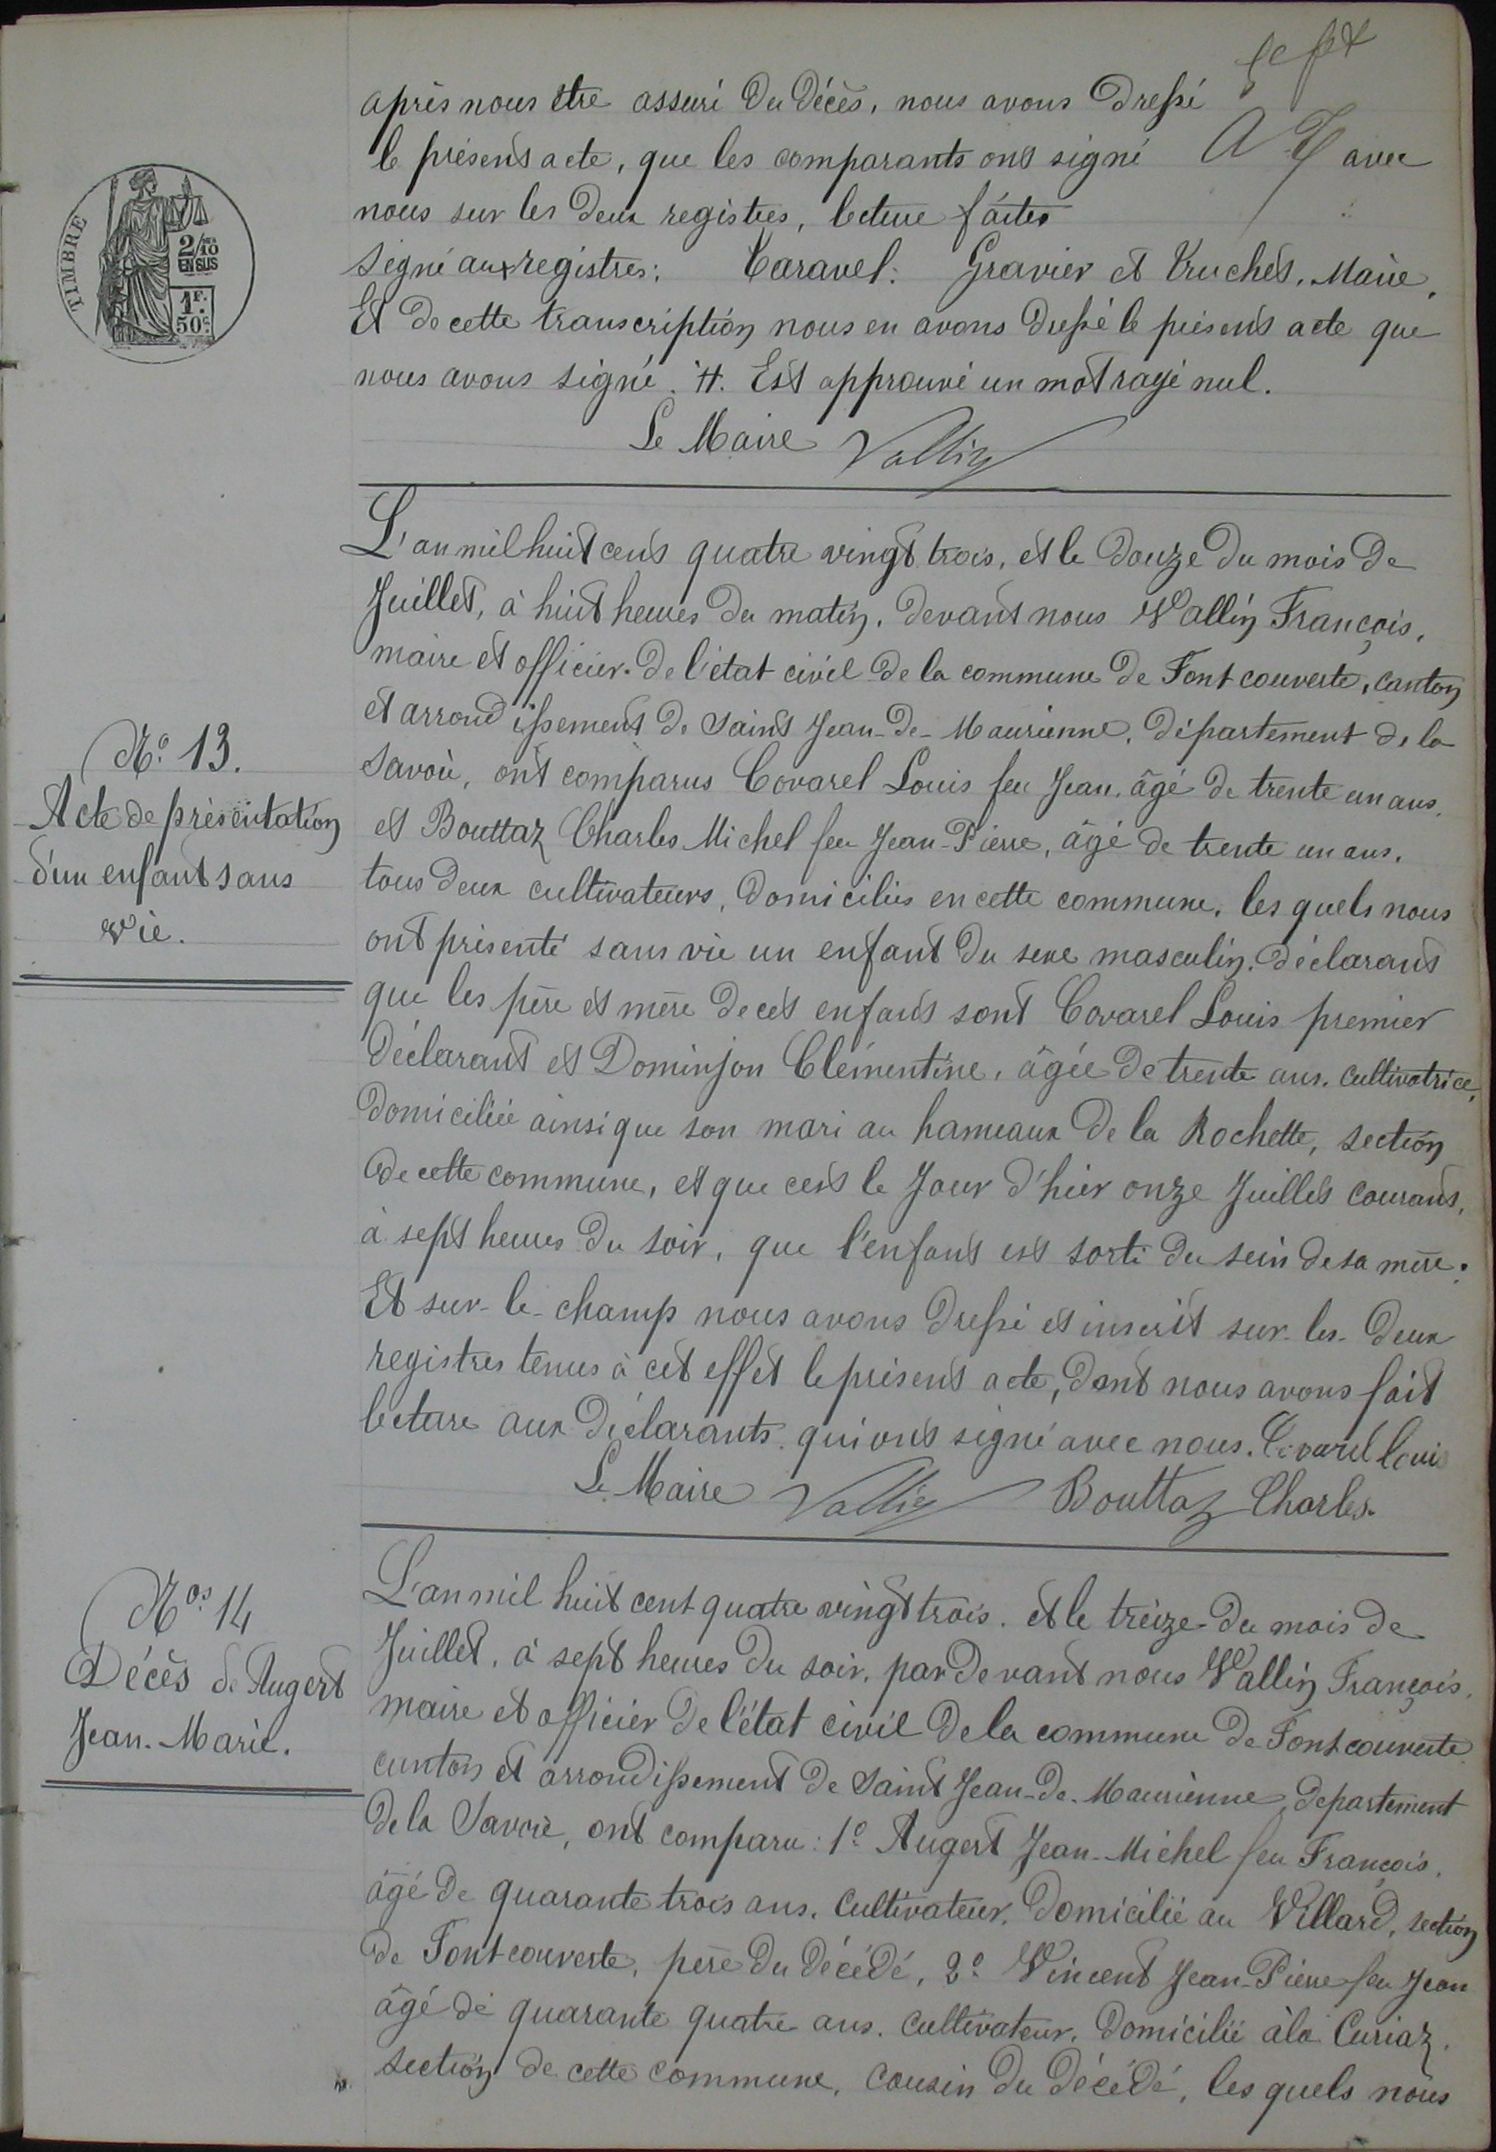 5e fet
après nous être assuré du décès, nous avons dressé
le présent acte, que les comparants ont signé avec
nous sur les deux registres, lecture faites
signé aux registres: Caravel. Gravier et Truchet. Maire.
Et de cette transcription nous en avons dressé le présent acte que
nous avons signé. Est approuvé un mot rayé nul.
Le Maire Vallin
TIMBRE
2/10 EN SUS
1F. 50c
L'an mil huit cent quatre vingt trois, et le douze du mois de
Juillet, à huit heures du matin, devant nous Vallin François,
maire et officier de l'état civil de la commune de Fontcouverte, canton
et arrondissement de Saint Jean-de-Maurienne, département de la
Savoie, ont comparus Covarel Louis feu Jean, âgé de trente un ans,
et Bouttaz Charles Michel feu Jean-Pierre, âgé de trente un ans,
tous deux cultivateurs, domiciliés en cette commune, les quels nous
ont présenté sans vie un enfant du sexe masculin, déclarant
que les père et mère de cet enfant sont Covarel Louis premier
déclarant et Dominjon Clémentine, âgée de trente ans, cultivatrice,
domiciliée ainsi que son mari au hameaux de la Rochette, section
de cette commune, et que cest le Jour d'hier onze Juillet courant,
à sept heures du soir, que l'enfant est sorti du sein de sa mère.
Et sur-le-champ nous avons dressé et inscrit sur-les-deux
registres tenus à cet effet le présent acte, dont nous avons fait
lecture aux déclarants qui ont signé avec nous. Covarel Louis
Le Maire Vallin Bouttaz Charles.
N° 13.
Acte de présentation
d'un enfant sans
vie.
L'an mil huit cent quatre vingt trois. et le treize du mois de
Juillet, à sept heures du soir, par devant nous Vallin François,
maire et officier de l'état civil de la commune de Fontcouverte
canton et arrondissement de Saint Jean-de-Maurienne, département
de la Savoie, ont comparu: 1° Augert Jean-Michel feu François,
âgé de quarante trois ans, cultivateur, domicilié au Villard, section
de Fontcouverte, père du décédé, 2° Vincent Jean-Pierre feu Jean
âgé de quarante quatre ans, cultivateur, domicilié à la Curiaz,
section de cette commune, cousin du décédé, les quels nous
Nos 14
Décès de Augert
Jean-Marie.